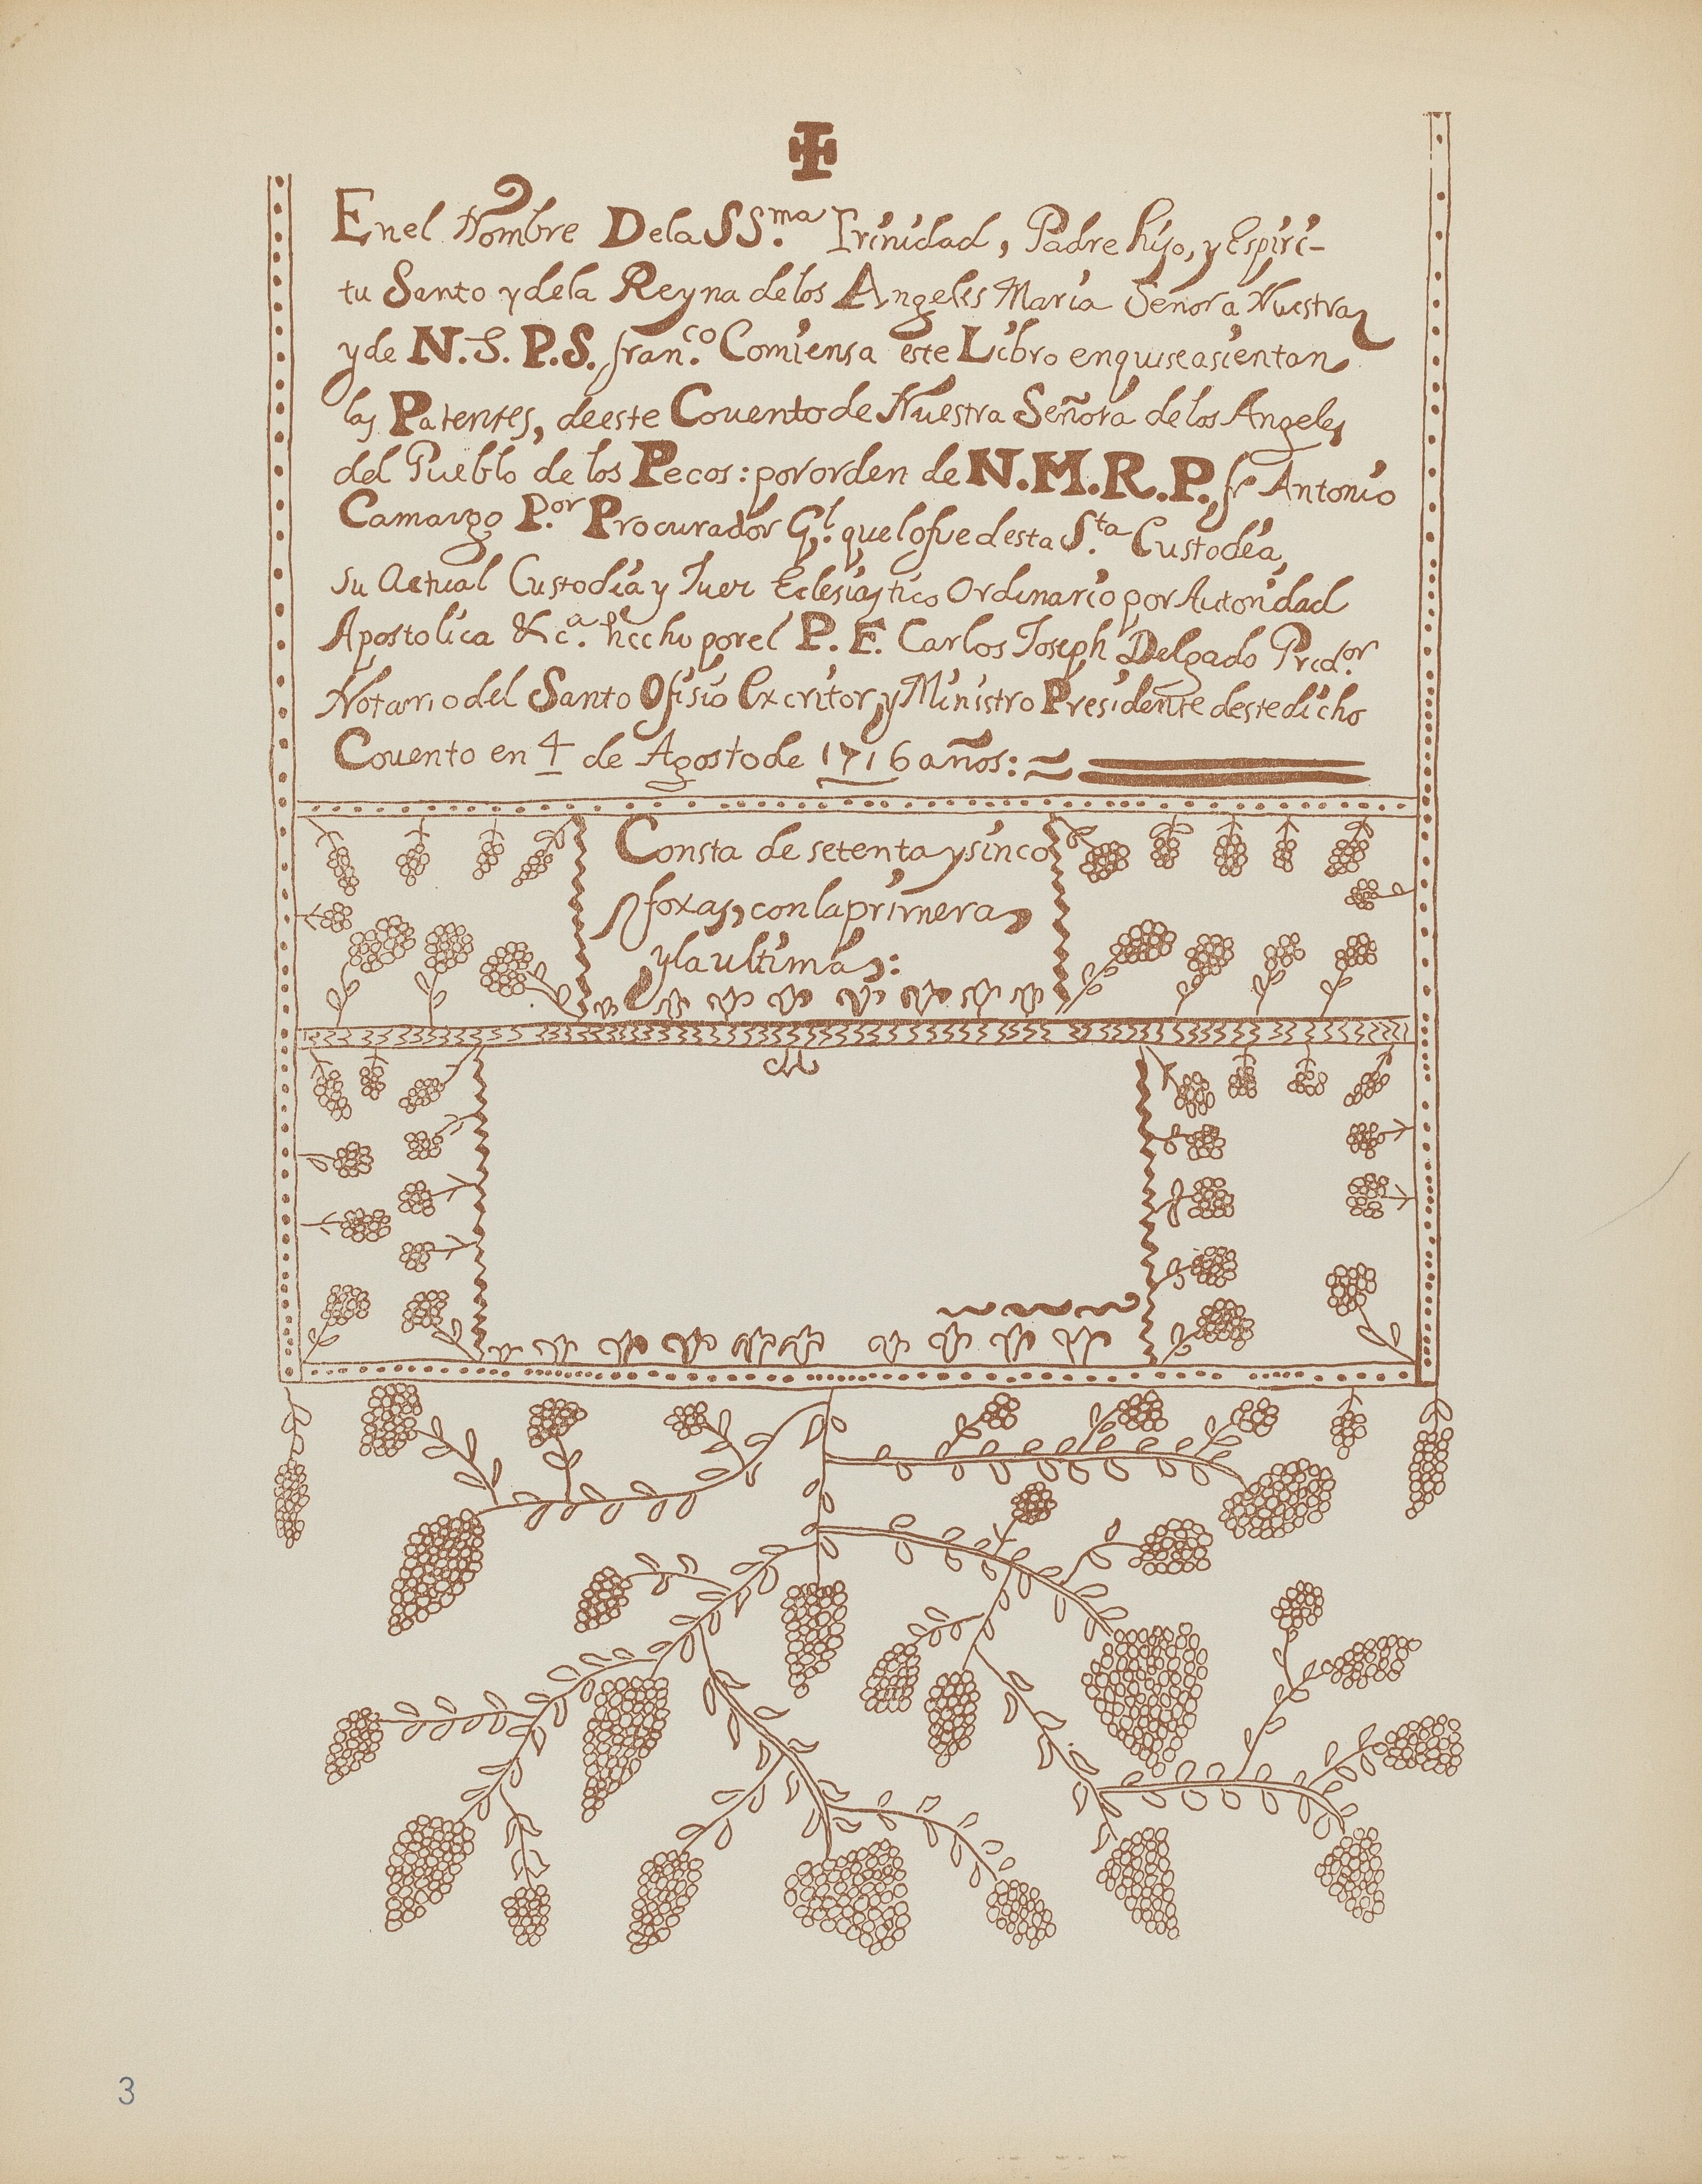 En el Nombre De la SS.ma Trinidad, Padre hijo, y Espiri-
tu Santo y de la Reyna de los Angeles Maria Señora Nuestra
y de N.S. P.S. fran.co Comiensa este Libro en qui se asientan
las Patentes, de este Couento de Nuestra Señora de los Angeles
del Pueblo de los Pecos: por orden de N.M.R.P. fr Antonio
Camargo P.or Procurador G.l que lo fue desta S.ta Custodia,
su Actual Custodia y Juez Eclesiastico Ordinario por Autoridad
Apostolica &c.a hecho por el P. F. Carlos Joseph Delgado Pred.or
Notario del Santo Ofisio Excritor, y Ministro Presidente deste dicho
Couento en 4 de Agosto de 1716 años:
Consta de setenta y sinco
foxas, con la primera,
y la ultima:
3